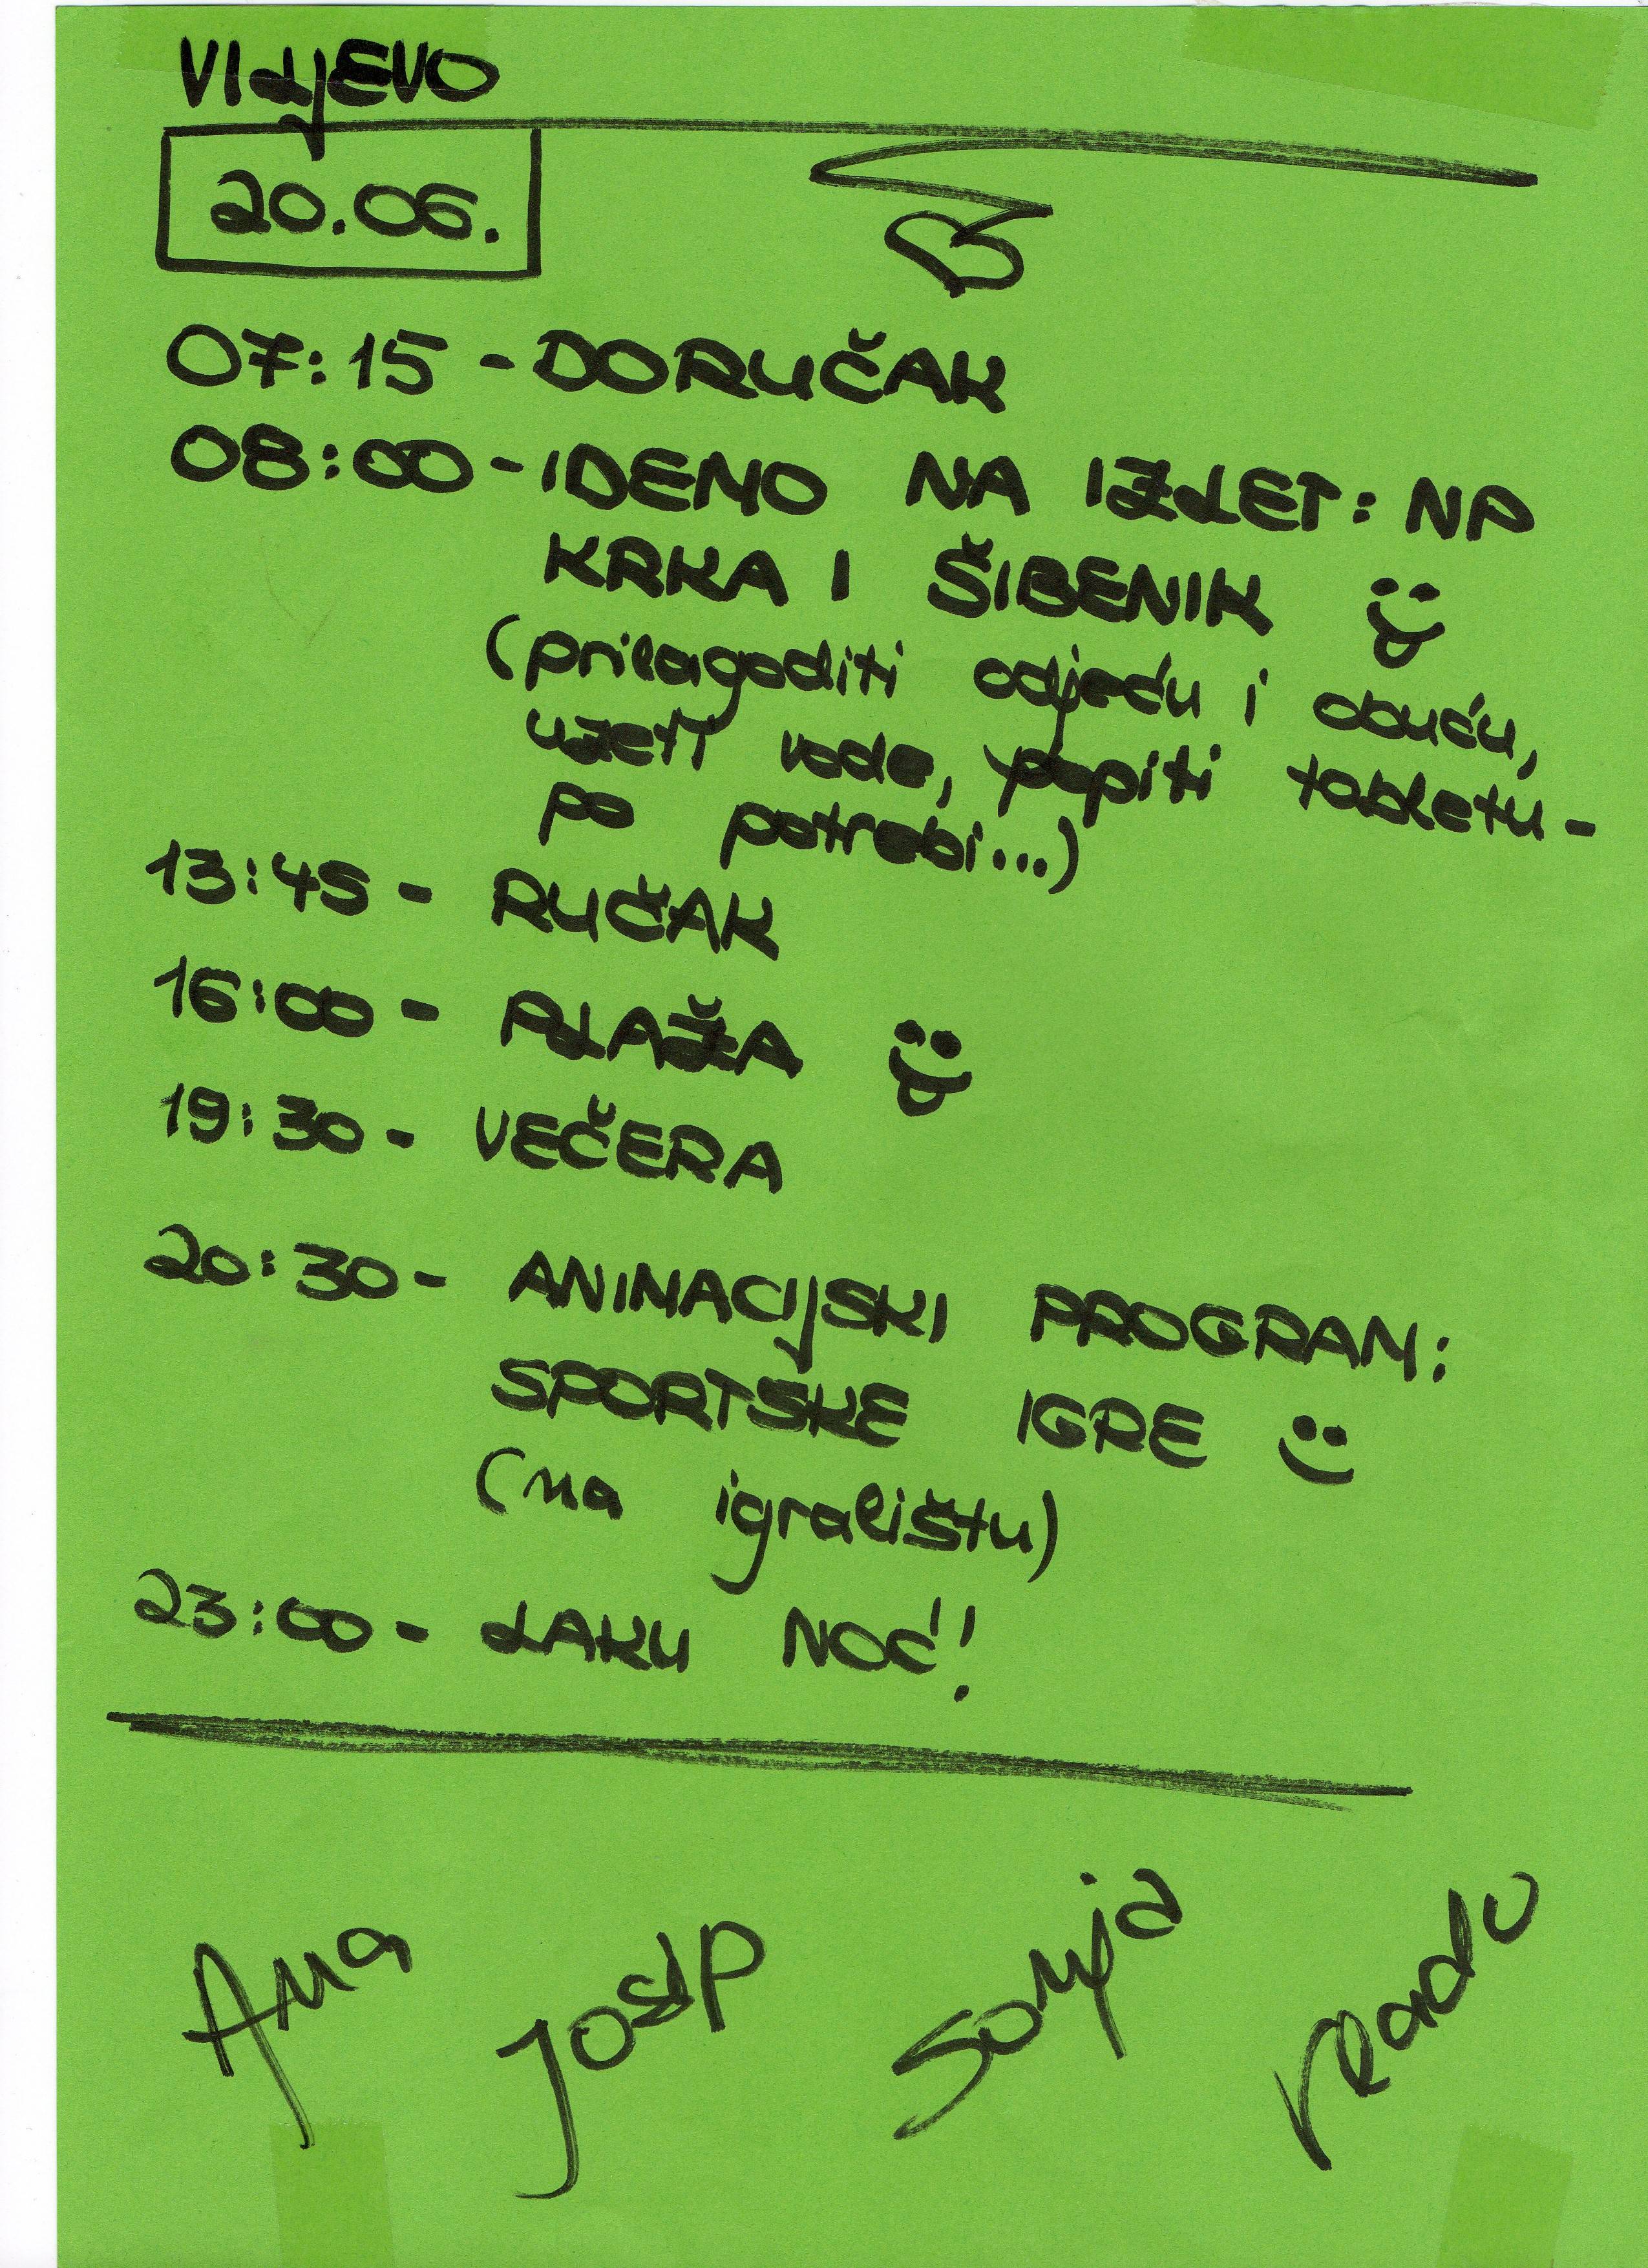 VILJEVO
20.06.
07:15 - DORUČAK
08:00 - IDEMO NA IZLET: NP
KRKA I ŠIBENIK
(prilagoditi odjeću i obuću,
uzeti vode, popiti tabletu -
po potrebi...)
13:45 - RUČAK
16:00 - PLAŽA
19:30 - VEČERA
20:30 - ANIMACIJSKI PROGRAM:
SPORTSKE IGRE
(na igralištu)
23:00 - LAKU NOĆ!
Ana Josip Sonja Vlado